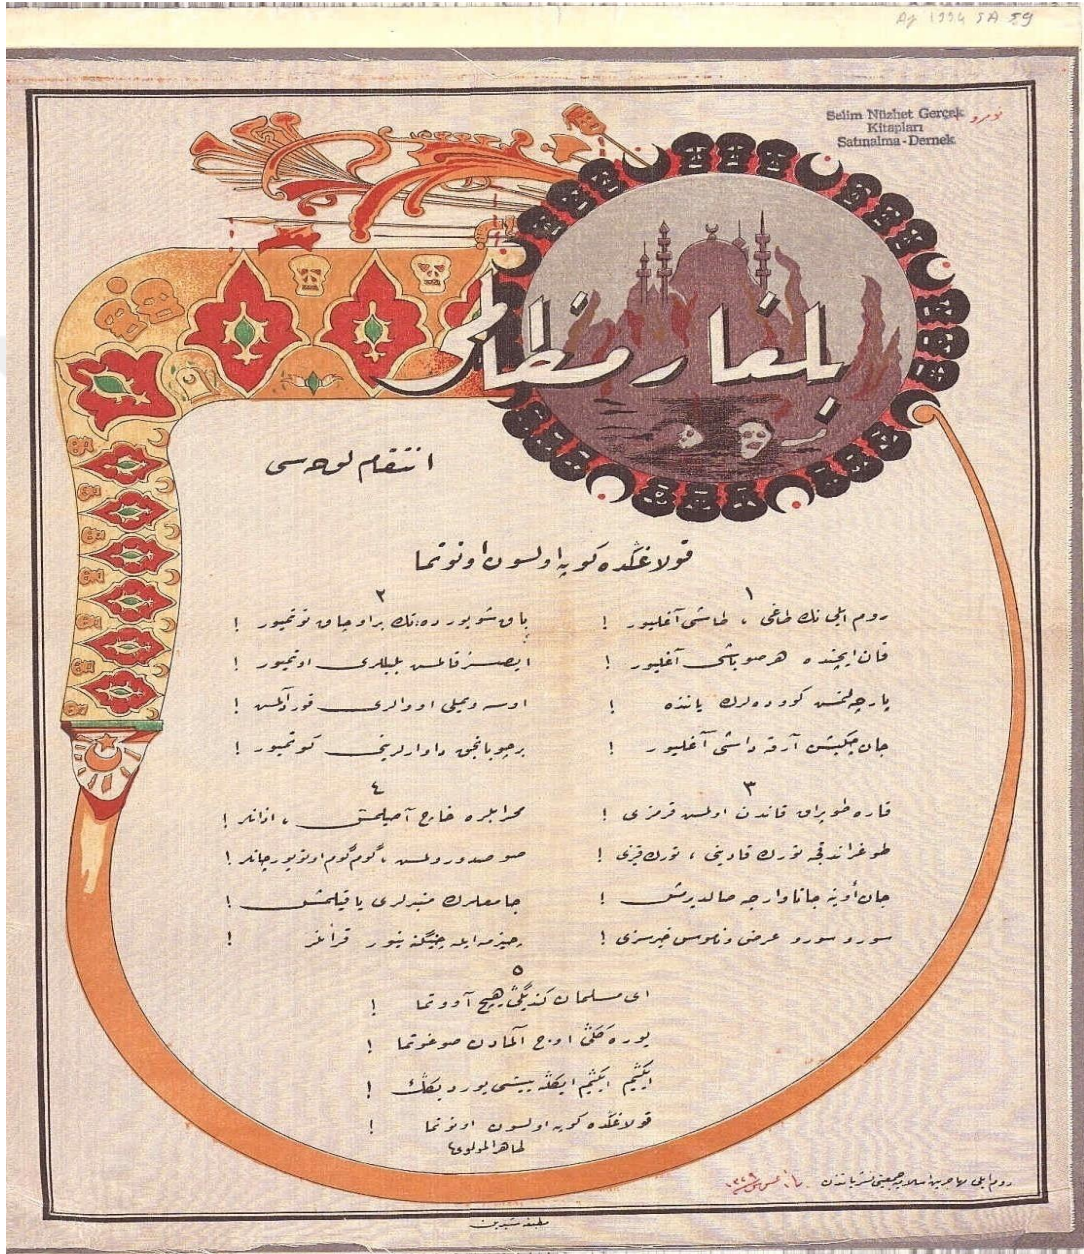 Aj 1994 SA 59
Selim Nüzhet Gerçek
Kitapları
Satınalma-Dernek
بلغار مظالمی
انتقام لوحه سی
قولاغڭده كوپه اولسون اونوتما
١
روم ایلی نك طاغی ، طاشی آغلیور !
قان ایچنده هر صو باشی آغلیور !
پارچه لنمش كووده لرك یاننده !
جان چكیشن آرقه داشی آغلیور !
٢
باق شو یورده : تك بر اوجاق توتمیور !
ایصسز قالمش بلبللری اوتمیور !
او سه ویملی اووالری !
بر چوبانجق داوارلرینی كوتمیور !
٣
قاره طوپراق قاندن اولمش قرمزی !
طوغراندقجه تورك قادینی ، تورك قیزی !
جان أوینه جاناوارجه صالدیرمش !
سورو سورو عرض و ناموس خیرسزی !
٤
محرابلره خاچ آصیلمش ، اذانلر !
صو صدورولمش ، گوم گوم اوتویور چانلر !
جامعلرك منبرلری یاقیلمش !
چیزمه ایله چیگنه نیور قرآنلر !
٥
ای مسلمان كندیڭی هیچ آووتما !
یوره گڭی اوج آلمادن صوغوتما !
یوردیڭڭ !
قولاغڭده كوپه اولسون اونوتما !
طاهر المولوی
روم ایلی مهاجرین اسلامیه جمعیتی نشریاتندن
مطبعه